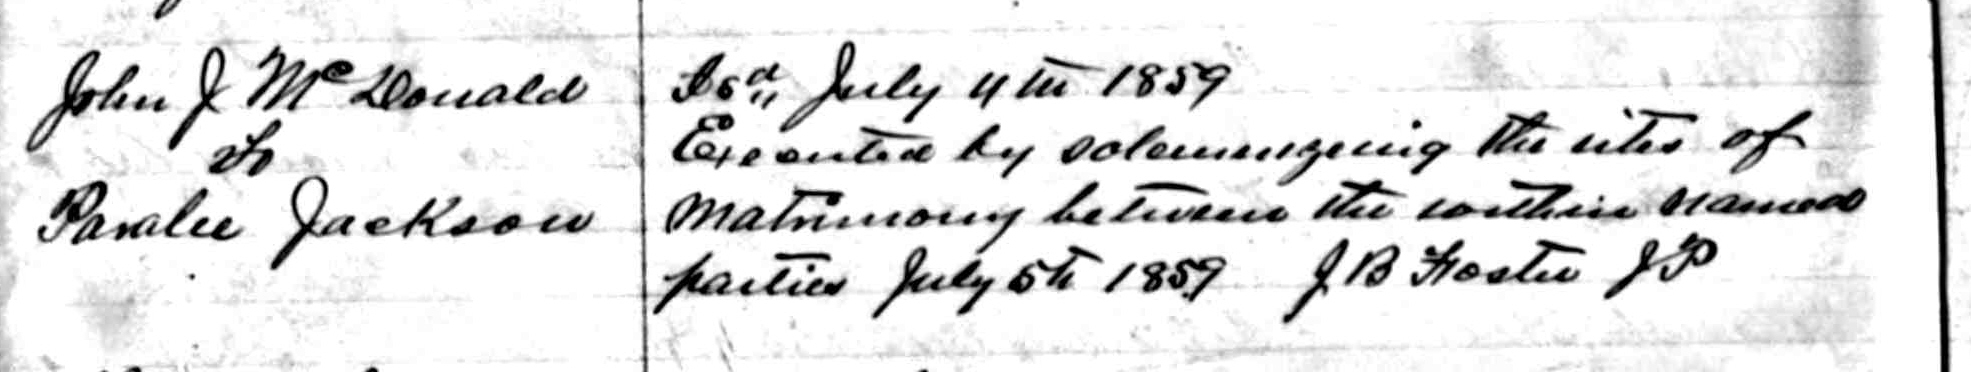 John J McDonald
to
Paralee Jackson
Isd July 4th 1859
Executed by solemnizeing the rites of
Matrimony between the within named
parties July 5th 1859 J B Foster J P